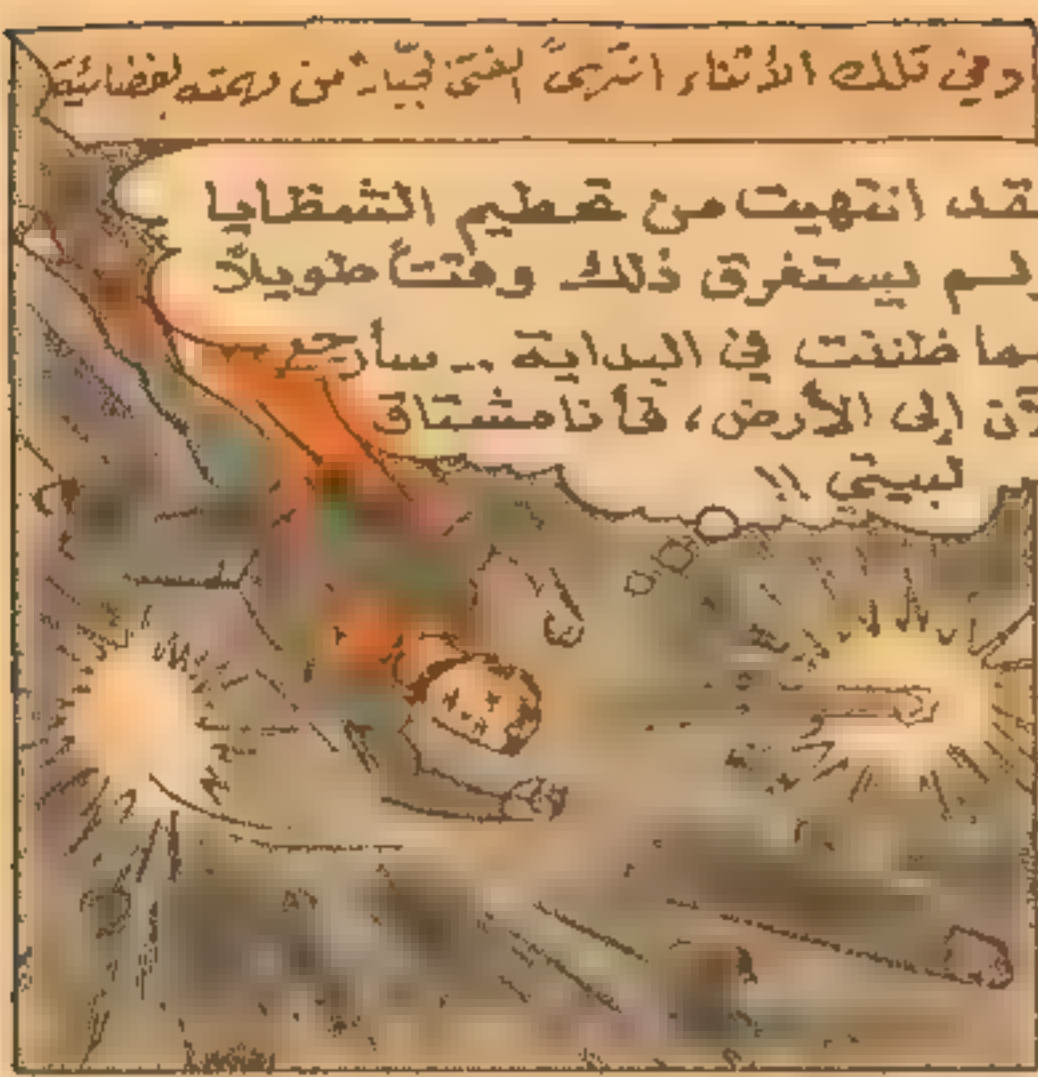 وفي تلك الأثناء انتهى الفتى الجبار من مهمته الفضائية
لقد انتهيت من تحطيم الشظايا
ولم يستغرق ذلك وقتاً طويلاً
كما ظننت في البداية .. سأرجع
الآن إلى الأرض، فأنا مشتاق
لبيتي !!